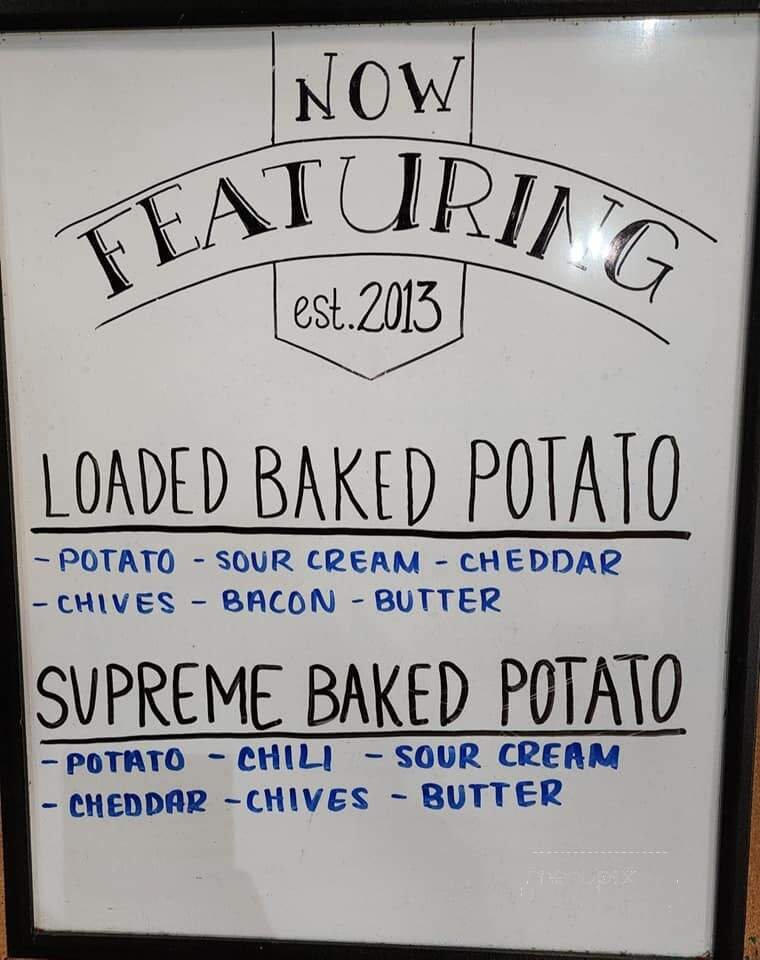 NOW
FEATURING
est.2013
LOADED BAKED POTATO
- POTATO - SOUR CREAM - CHEDDAR
- CHIVES - BACON - BUTTER
SUPREME BAKED POTATO
- POTATO - CHILI - SOUR CREAM
- CHEDDAR - CHIVES - BUTTER
menupix